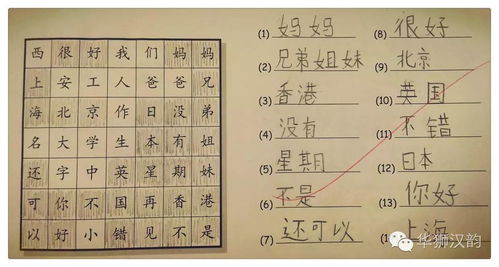 西 很 好 我 们 妈 妈
上 安 工 人 爸 爸 兄
海 北 京 作 日 没 弟
名 大 学 生 本 有 姐
还 字 中 英 星 期 妹
可 你 不 国 再 香 港
以 好 小 错 见 不 是
(1) 妈妈
(2) 兄弟姐妹
(3) 香港
(4) 没有
(5) 星期
(6) 不是
(7) 还可以
(8) 很好
(9) 北京
(10) 英国
(11) 不错
(12) 日本
(13) 你好
(1 上海
华狮汉韵